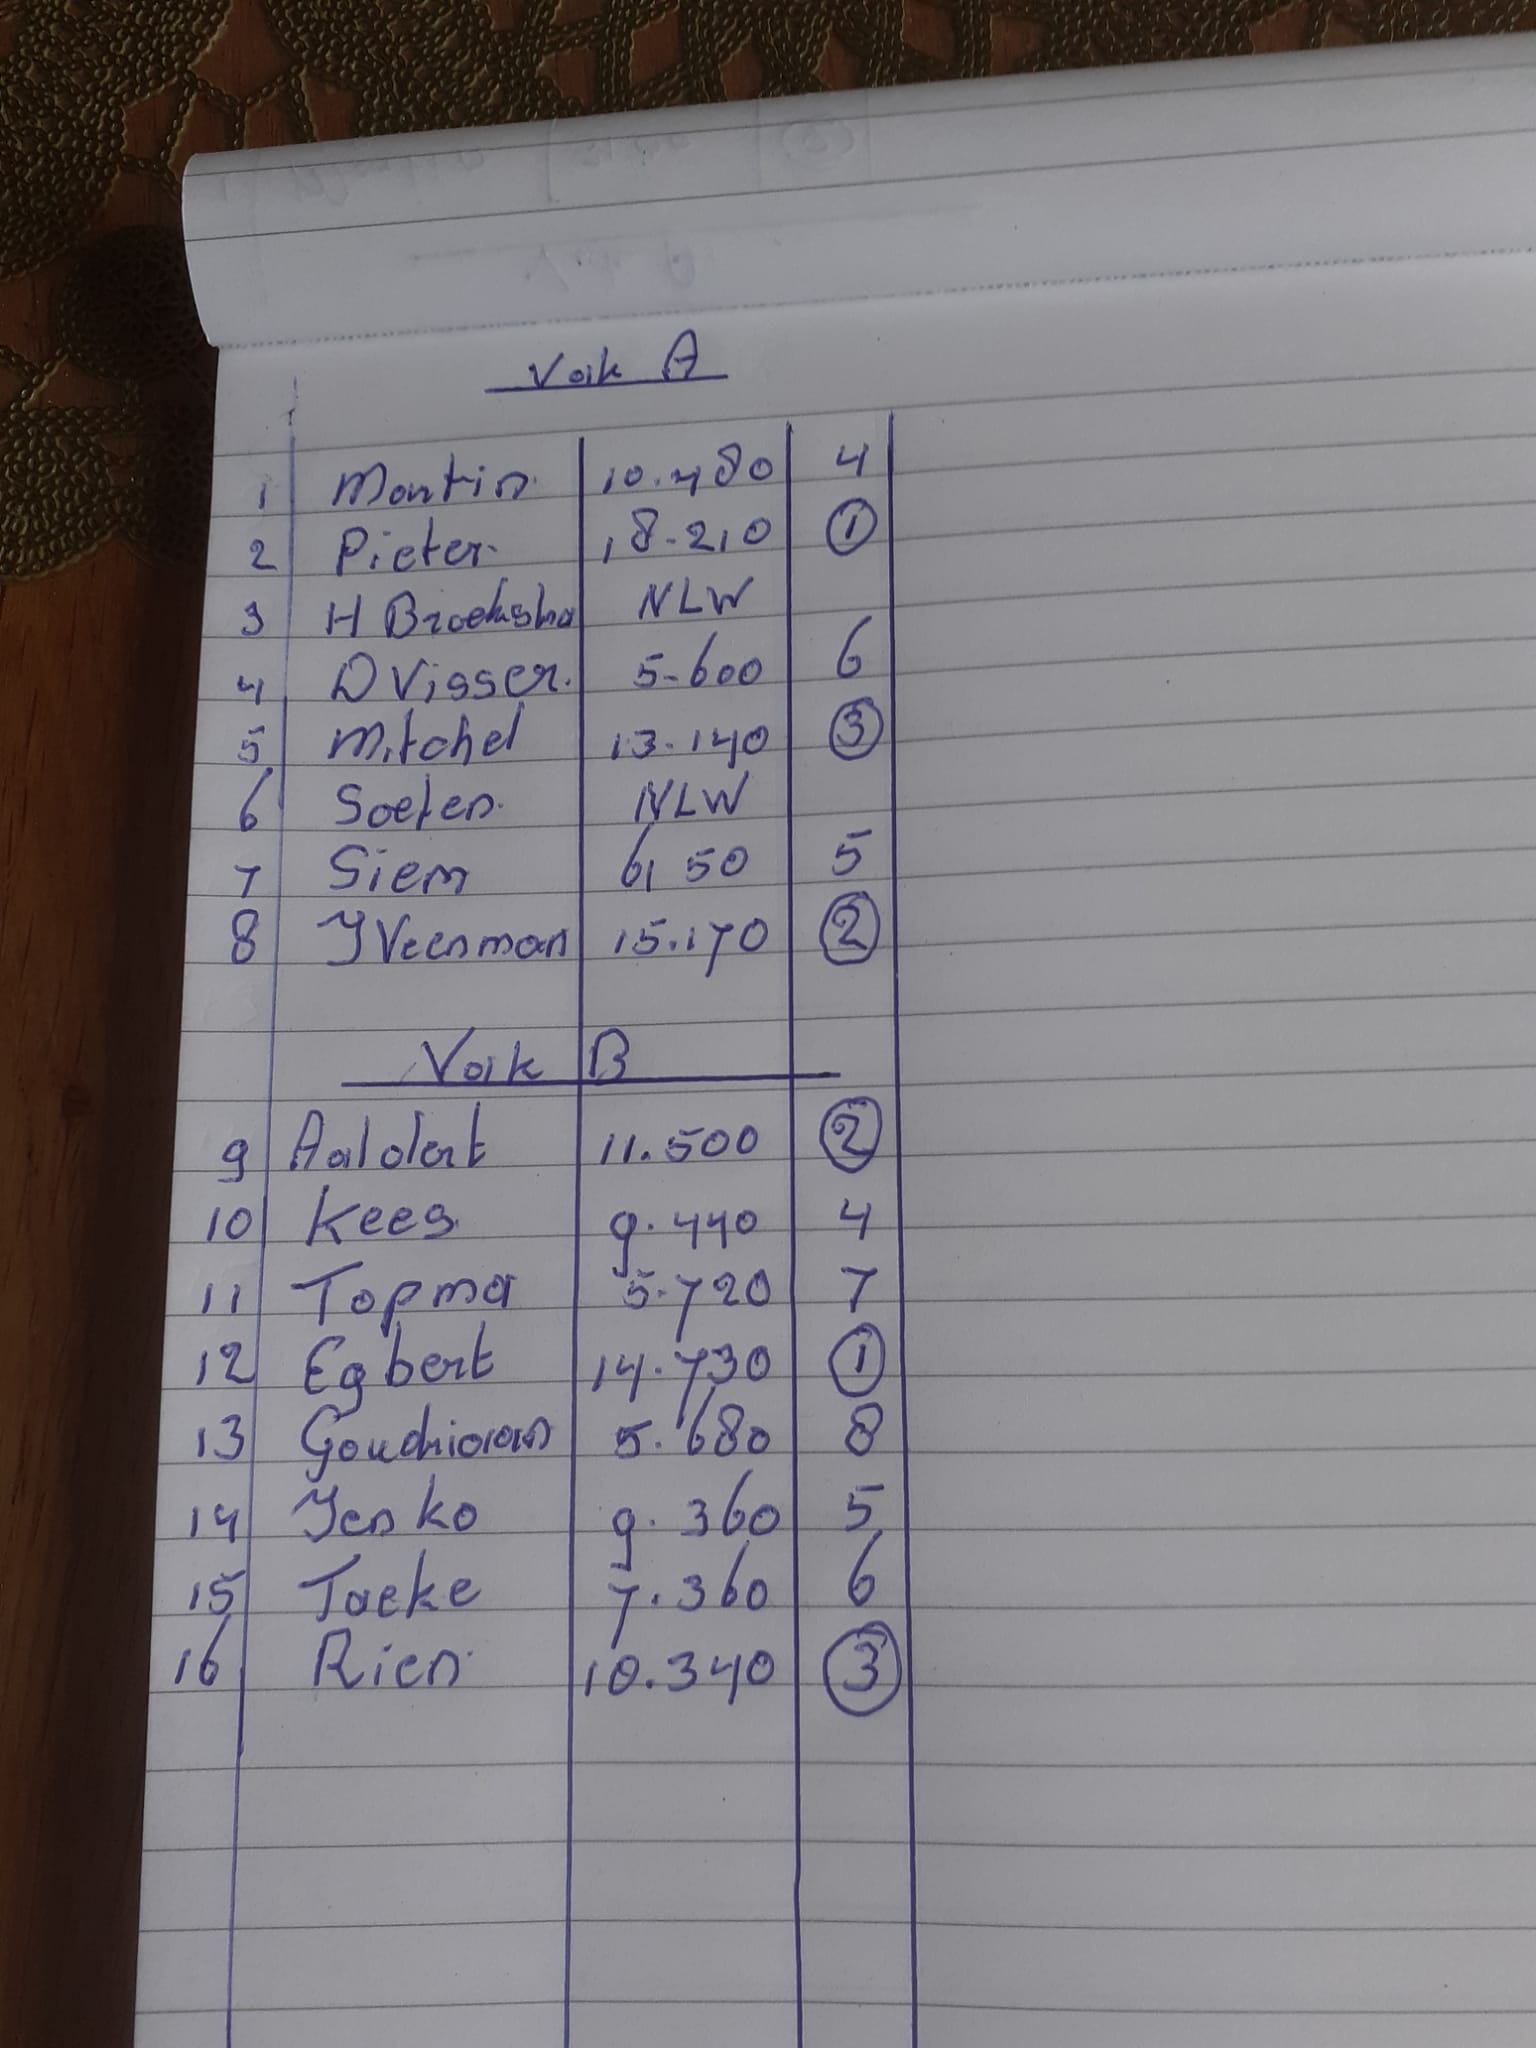 Vak A
1 Martin. 10.480 4
2 Pieter. 18.210 1
3 H Broeksma NLW
4 D Visser. 5-600 6
5 Mitchel 13.140 3
6 Soeten. NLW
7 Siem 6150 5
8 J Veenman 15.170 2
Vak B
9 Aaldert 11.500 2
10 Kees. 9.440 4
11 Topma 5.720 7
12 Egbert 14.730 1
13 Goudriaan 5.680 8
14 Jenko 9.360 5
15 Taeke 7.360 6
16 Rien. 10.340 3